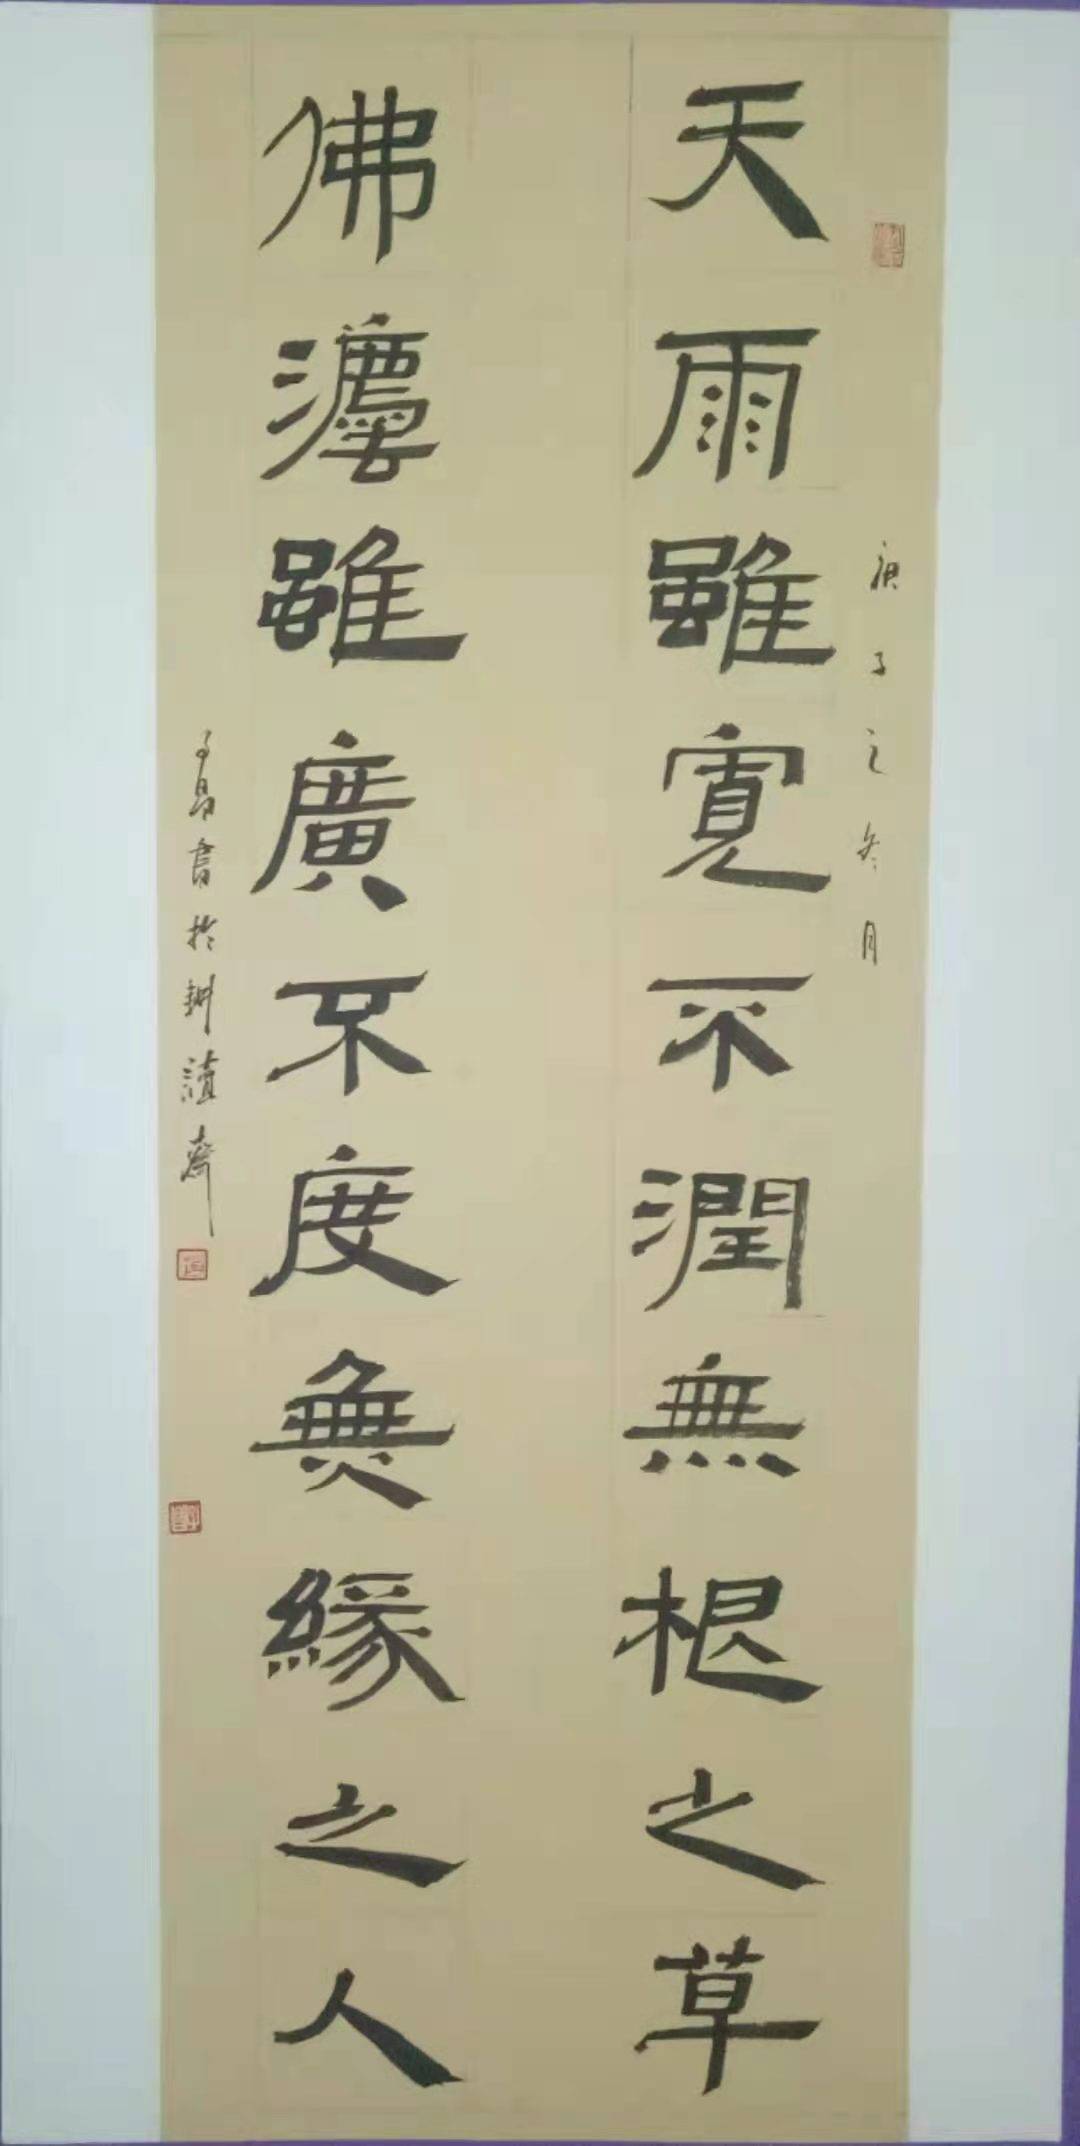 庚子之冬月
天雨雖寬不潤無根之草
佛灋雖廣不度無緣之人
書於耕讀齋